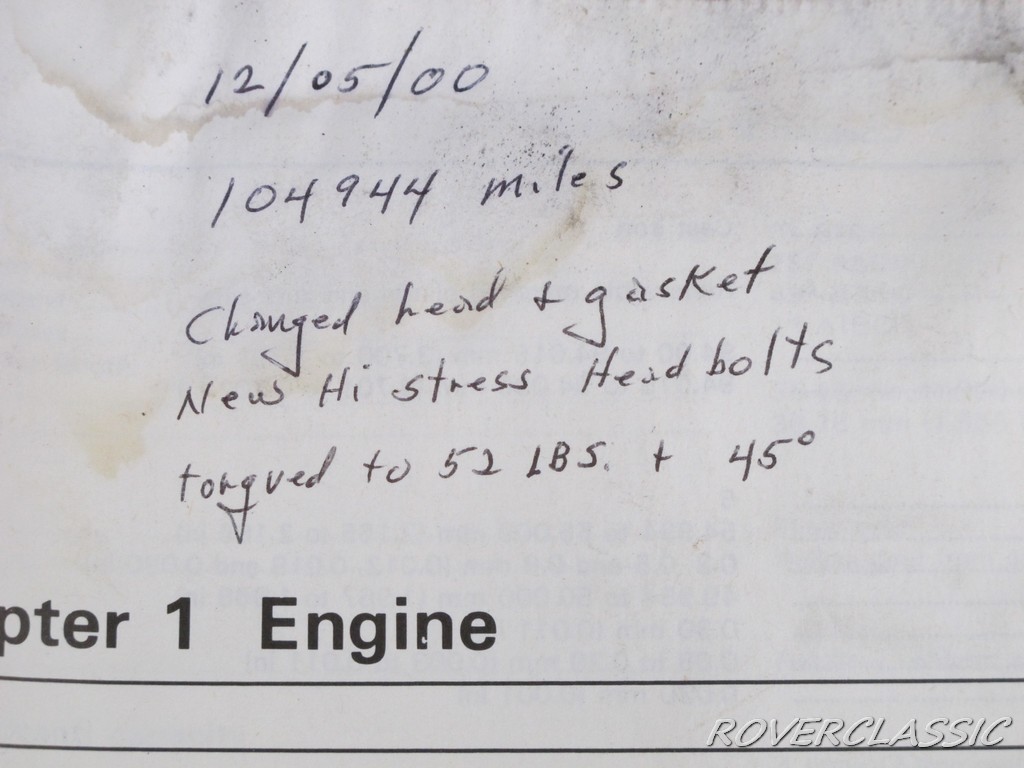 12/05/00
104944 miles
Changed head + gasket
New Hi stress Head bolts
torqued to 52 LBS. + 45°
pter 1 Engine
ROVERCLASSIC